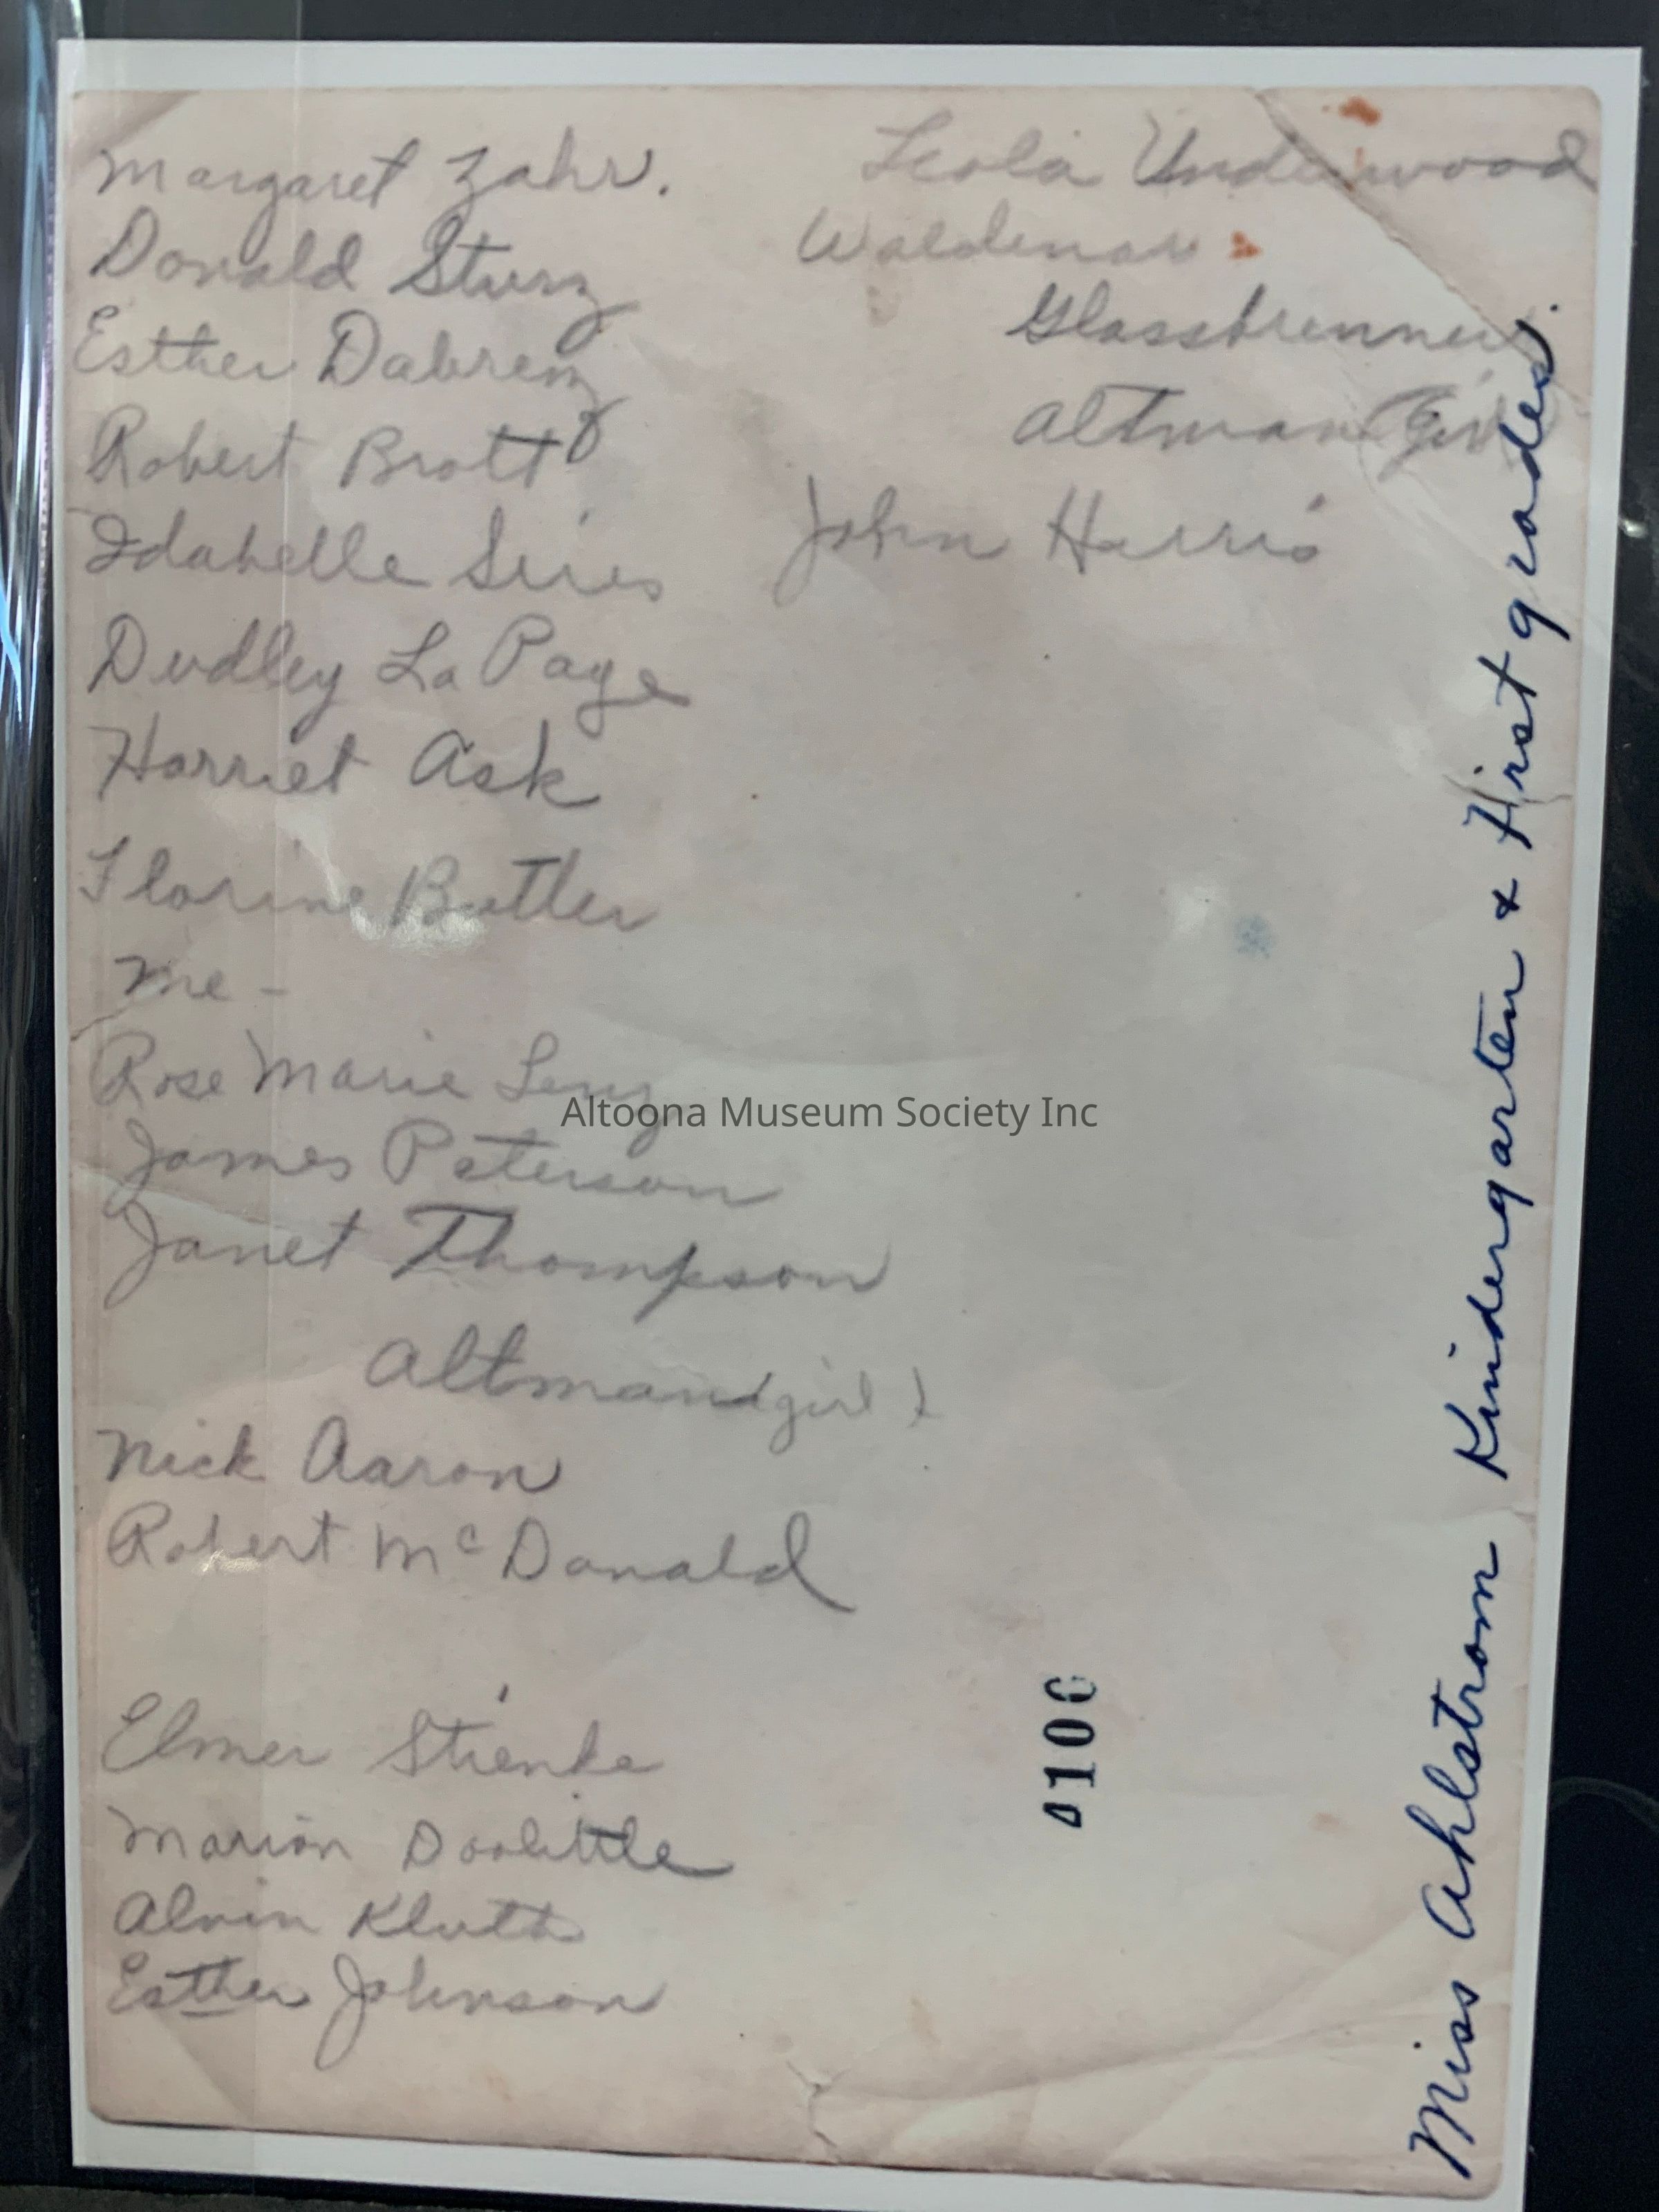 Margaret Zahr.
Donald Sturz
Esther Dabrenz
Robert Brott
Idabelle Sires
Dudley La Page
Harriet Ask
Florine Butler
Me -
Rose Marie Lenz
James Peterson
Janet Thompson
Altman girl
Nick Aaron
Robert McDonald
Elmer Stienke
Marion Doolittle
Alvin Kluth
Esther Johnson
Leola Underwood
Waldemar
Glassbrenner
Altman Girl
John Harris
Miss Ahlstrom Kindergarten & First grades.
Altoona Museum Society Inc